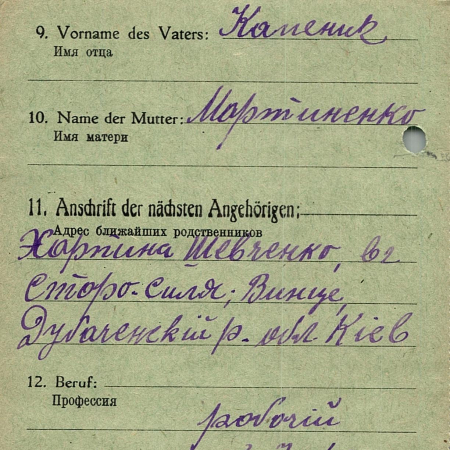 9. Vorname des Vaters: Каленик
Имя отца
10. Name der Mutter: Мартиненко
Имя матери
11. Anschrift der nächsten Angehörigen:
Адрес ближайших родственников
Шевченко,
Старо-силя;
р. обл Кіев
12. Beruf:
Профессия
робочій